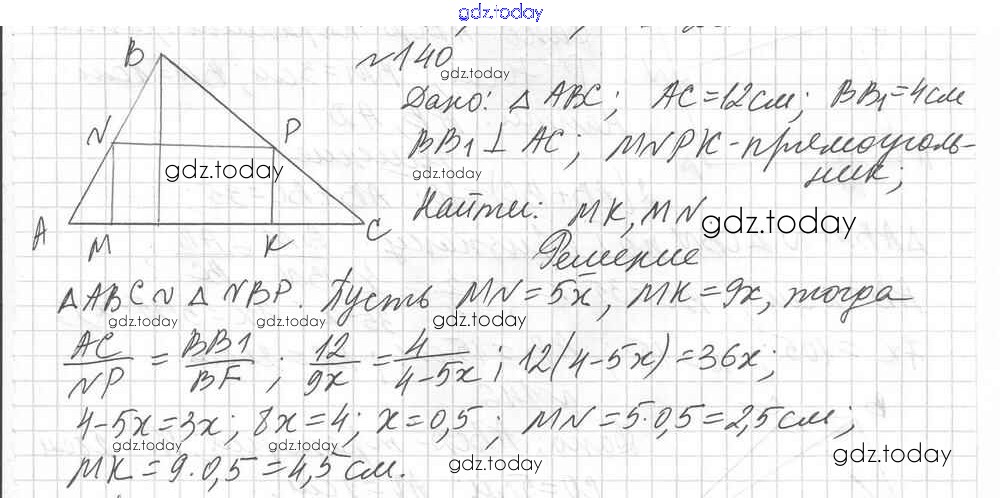 gdz.today
№140
B
gdz.today
Дано: △ABC; AC=12см; BB₁=4см
N
P
gdz.today
BB₁ ⊥ AC; MNPK-прямоуголь-
ник;
gdz.today
Найти: MK, MN
gdz.today
A
M
K
C
Решение
△ABC ∾ △NBP. Пусть MN=5x, MK=9x, тогда
gdz.today gdz.today gdz.today
AC/NP = BB1/BF; 12/9x = 4/(4-5x); 12(4-5x)=36x;
4-5x=3x; 8x=4; x=0,5; MN=5·0,5=2,5см;
gdz.today gdz.today gdz.today
MK=9·0,5=4,5см.
gdz.today